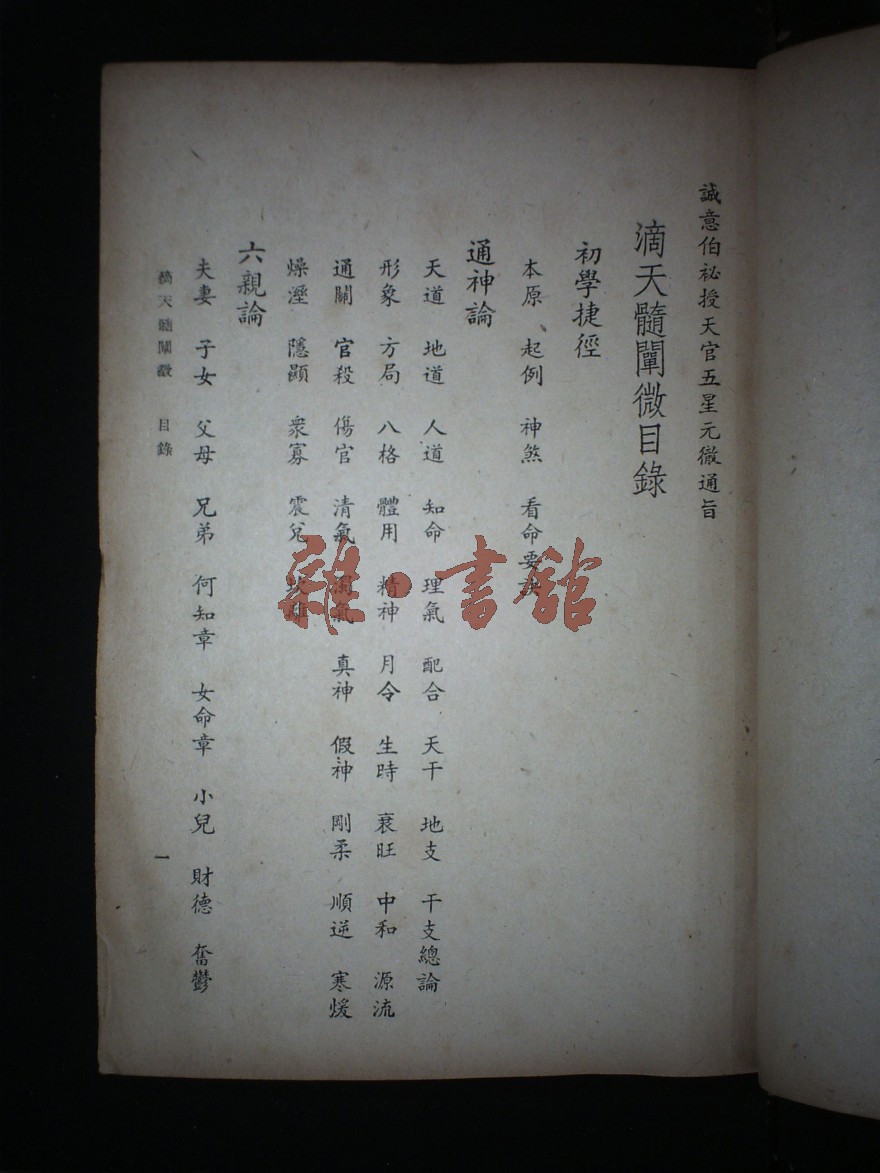 誠意伯祕授天官五星元徹通旨
滴天髓闡微目錄
初學捷徑
本原 起例 神煞 看命要訣
通神論
天道 地道 人道 知命 理氣 配合 天干 地支 干支總論
形象 方局 八格 體用 精神 月令 生時 衰旺 中和 源流
通關 官殺 傷官 清氣 濁氣 真神 假神 剛柔 順逆 寒煖
燥溼 隱顯 衆寡 震兌 坎離
六親論
夫妻 子女 父母 兄弟 何知章 女命章 小兒 財德 奮鬱
滴天髓闡微 目錄 一
雜·書館